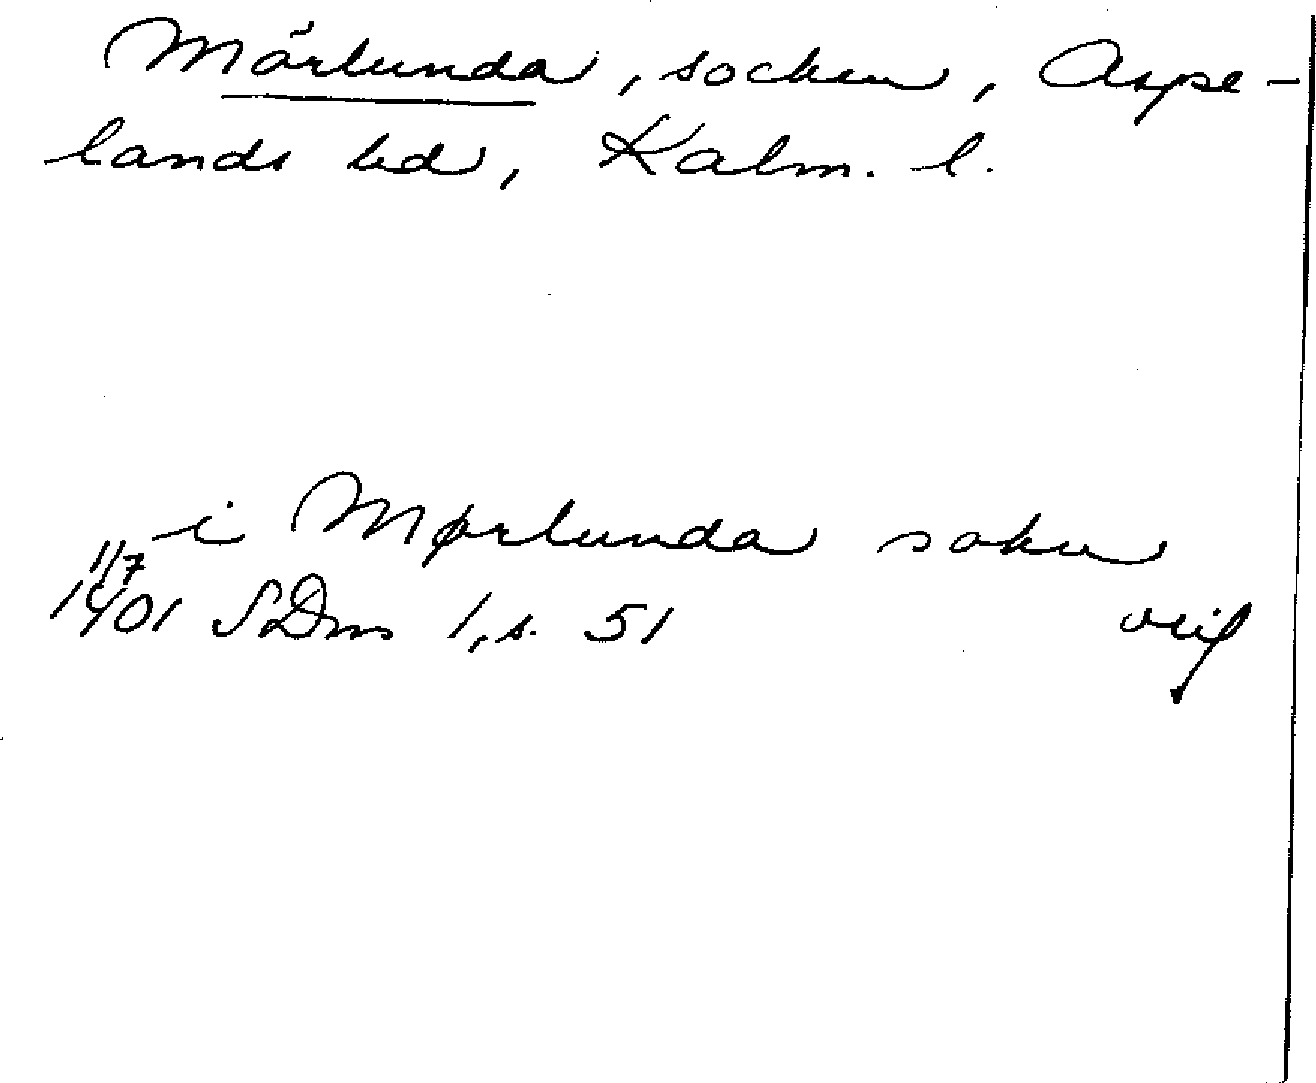 Mörlunda, socken, Aspe-
lands hd, Kalm. l.
i Mørlunda sokn
1/7
1401 SDns 1, s. 51 orig